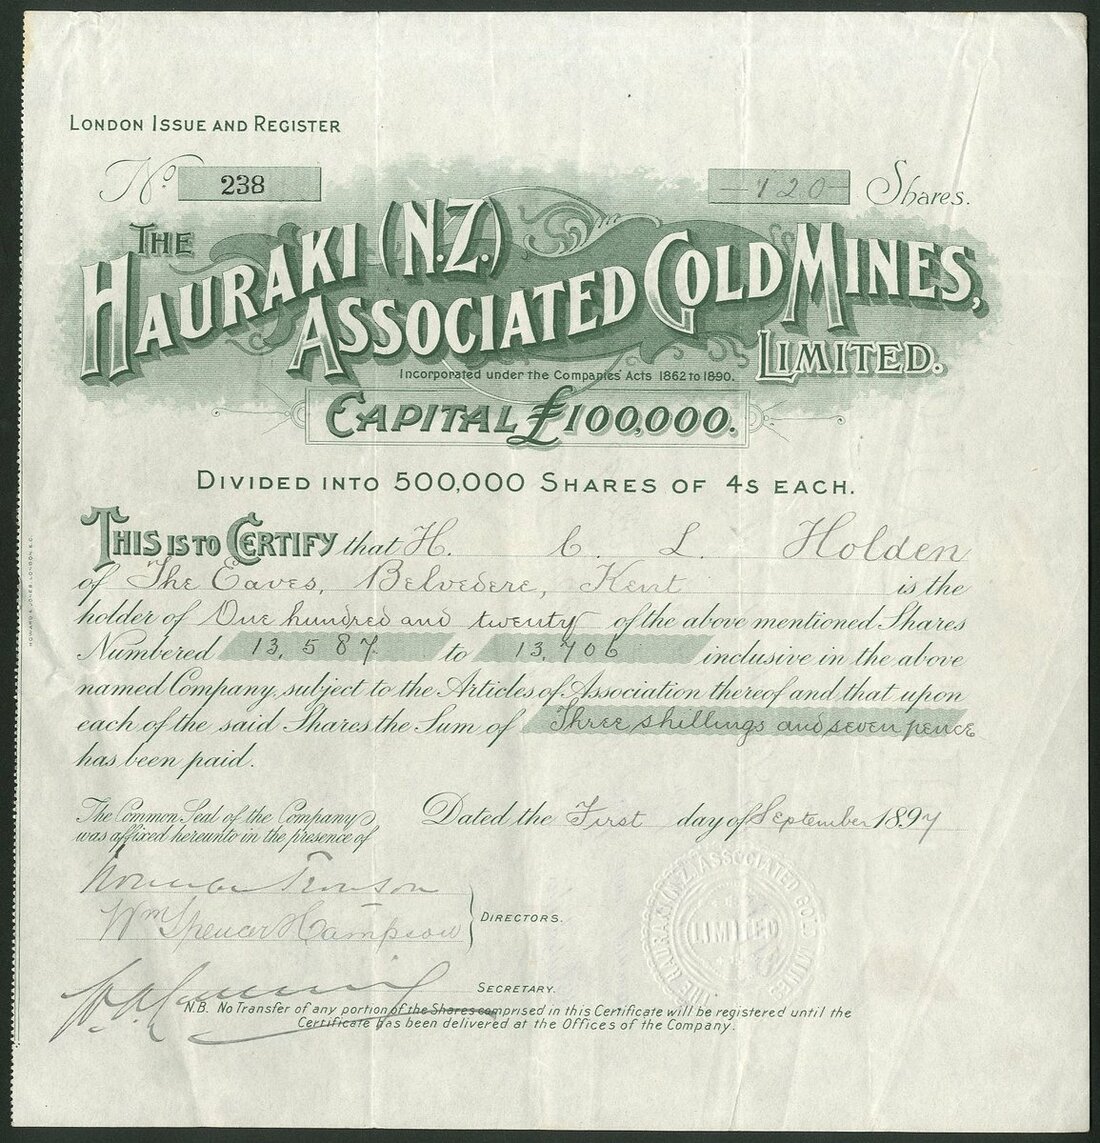 LONDON ISSUE AND REGISTER
No. 238
—120— Shares.
THE
HAURAKI (N.Z.)
ASSOCIATED GOLD MINES,
LIMITED.
Incorporated under the Companies' Acts 1862 to 1890.
CAPITAL £100,000.
DIVIDED INTO 500,000 SHARES OF 4S EACH.
THIS IS TO CERTIFY that H. C. L. Holden
of The Eaves, Belvedere, Kent is the
holder of One hundred and twenty of the above mentioned Shares
Numbered 13,587 to 13,706 inclusive in the above
named Company, subject to the Articles of Association thereof and that upon
each of the said Shares the Sum of Three shillings and seven pence
has been paid.
The Common Seal of the Company
was affixed hereunto in the presence of
Dated the First day of September 1897
Wm Spencer Hampson
DIRECTORS.
SECRETARY.
N.B. No Transfer of any portion of the Shares comprised in this Certificate will be registered until the
Certificate has been delivered at the Offices of the Company.
THE HAURAKI (N.Z.) ASSOCIATED GOLD MINES
LIMITED